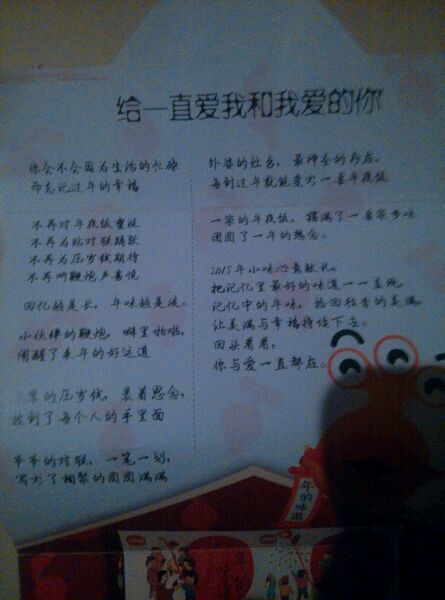 给一直爱我和我爱的你
你会不会因为生活的忙碌
而忘记过年的幸福
不再对年夜饭重视
不再为贴对联踊跃
不再为压岁钱期待
不再听鞭炮声喜悦
回忆越是长，年味越是淡。
小伙伴的鞭炮，噼里啪啦，
闹醒了来年的好运道
的压岁钱，裹着思念，
放到了每个人的手里面
爷爷的对联，一笔一划，
写列了相聚的团圆满满
外婆的灶台，最神奇的存在，
每到过年就能变出一桌年夜饭
一家的年夜饭，摆满了一桌家乡味
团圆了一年的想念。
2015年小味心意献礼，
把记忆里最好的味道一一呈现，
记忆中的年味，拾回往昔的美满，
让美满与幸福持续下去。
回头看看，
你与爱一直都在。
年的味道